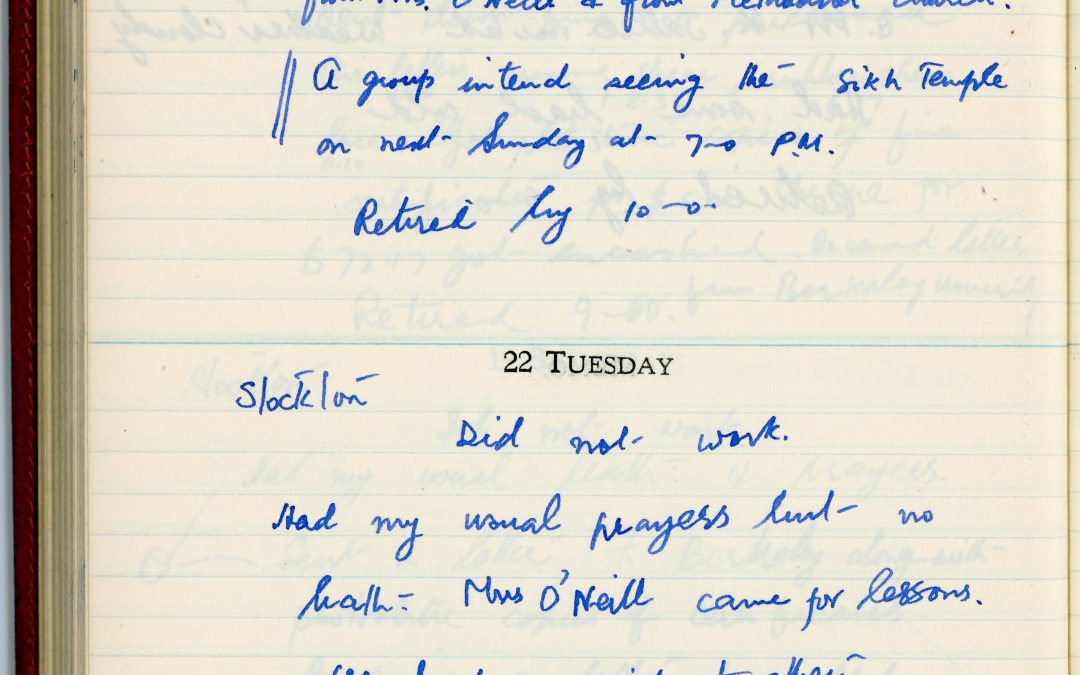 from Mrs. O'Neill & from Methodist Church.
A group intend seeing the Sikh Temple
on next Sunday at 7-0 P.M.
Retired by 10-0.
22 TUESDAY
Stockton
Did not work.
Had my usual prayers but no
bath. Mrs O'Neill came for lessons.